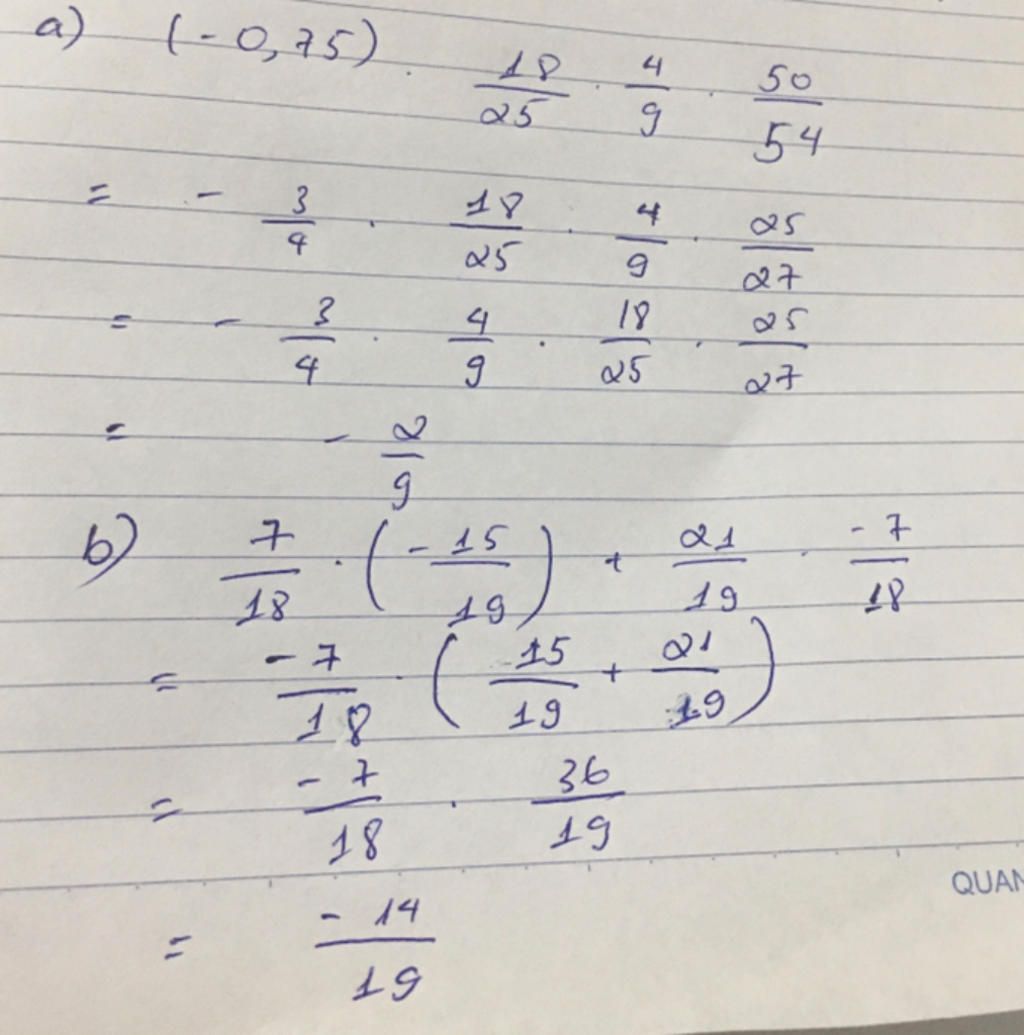 a) (-0,75) . 18/25 . 4/9 . 50/54
= - 3/4 . 18/25 . 4/9 . 25/27
= - 3/4 . 4/9 . 18/25 . 25/27
= - 2/9
b) 7/18 . (- 15/19) + 21/19 . -7/18
= -7/18 . (15/19 + 21/19)
= -7/18 . 36/19
QUAN
= -14/19